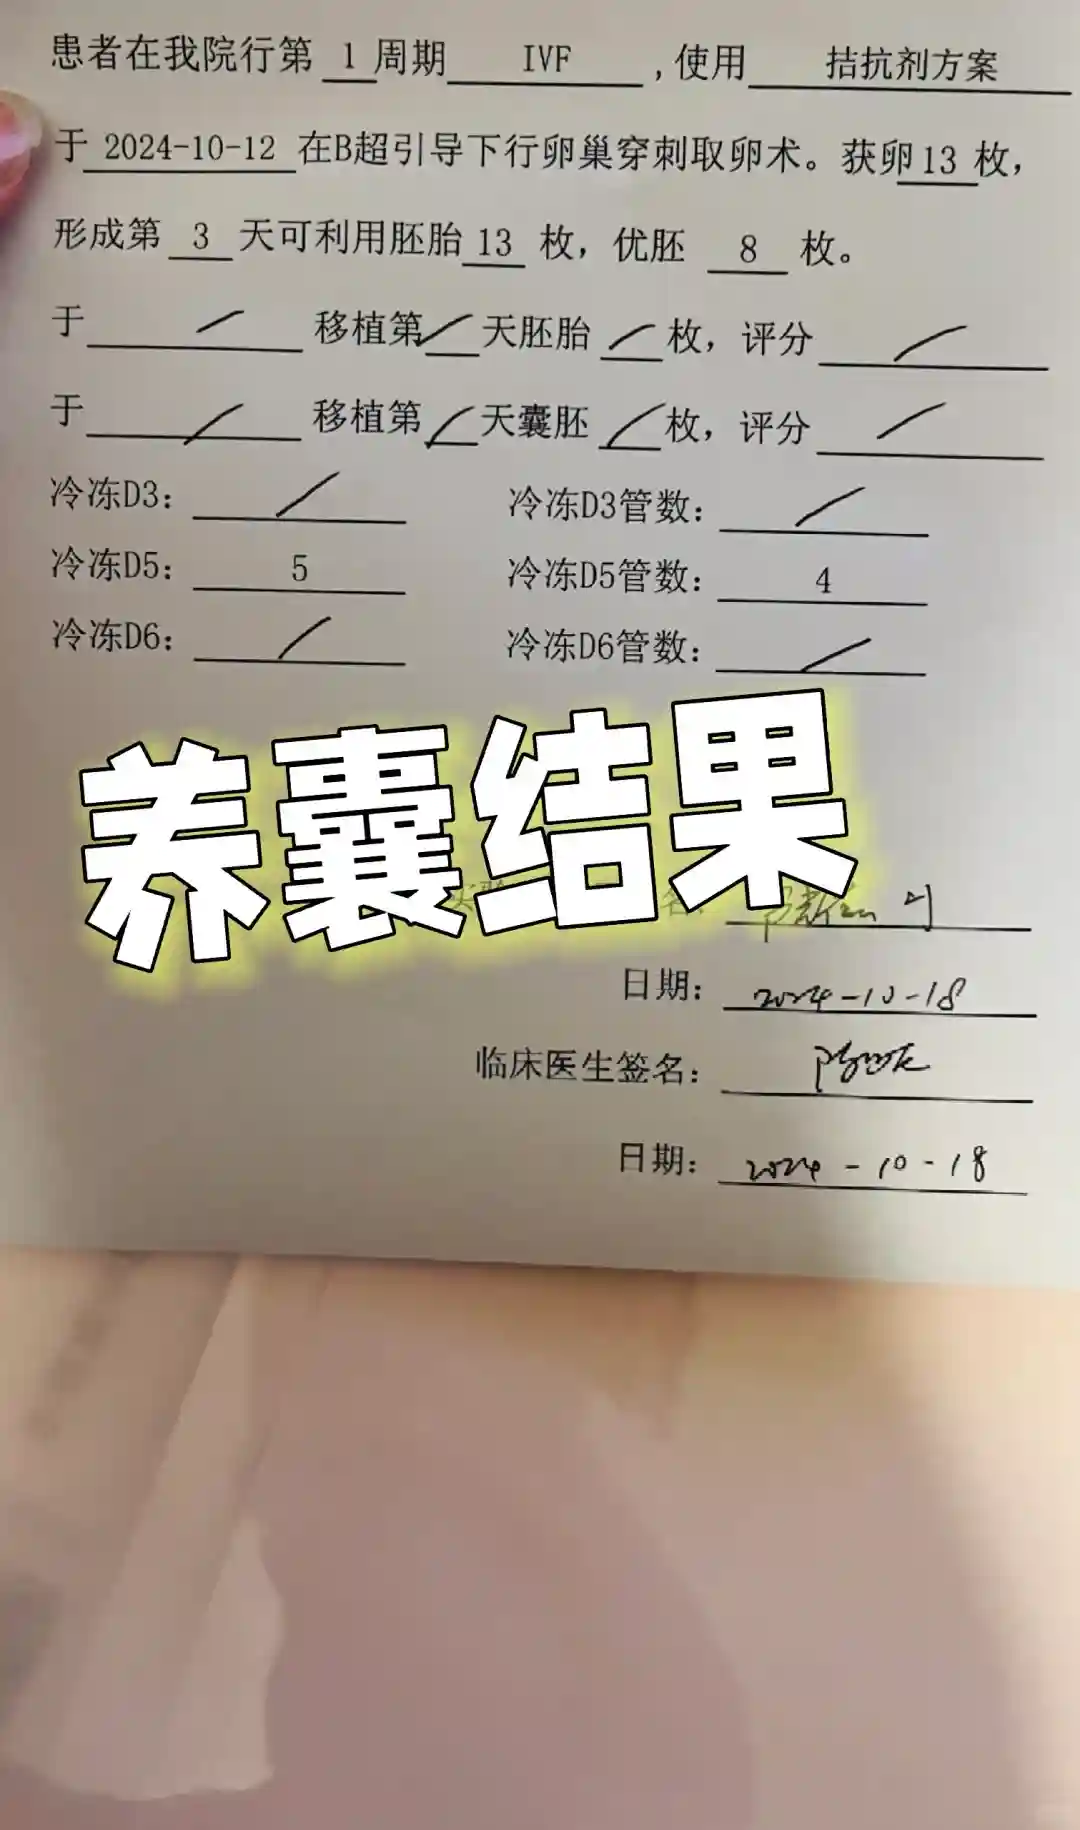 患者在我院行第 1 周期 IVF ,使用 拮抗剂方案
于 2024-10-12 在B超引导下行卵巢穿刺取卵术。获卵13枚,
形成第 3 天可利用胚胎 13 枚,优胚 8 枚。
于 / 移植第 / 天胚胎 / 枚,评分 /
于 / 移植第 / 天囊胚 / 枚,评分 /
冷冻D3: / 冷冻D3管数: /
冷冻D5: 5 冷冻D5管数: 4
冷冻D6: / 冷冻D6管数: /
养囊结果
名:
日期: 2024-10-18
临床医生签名:
日期: 2024-10-18